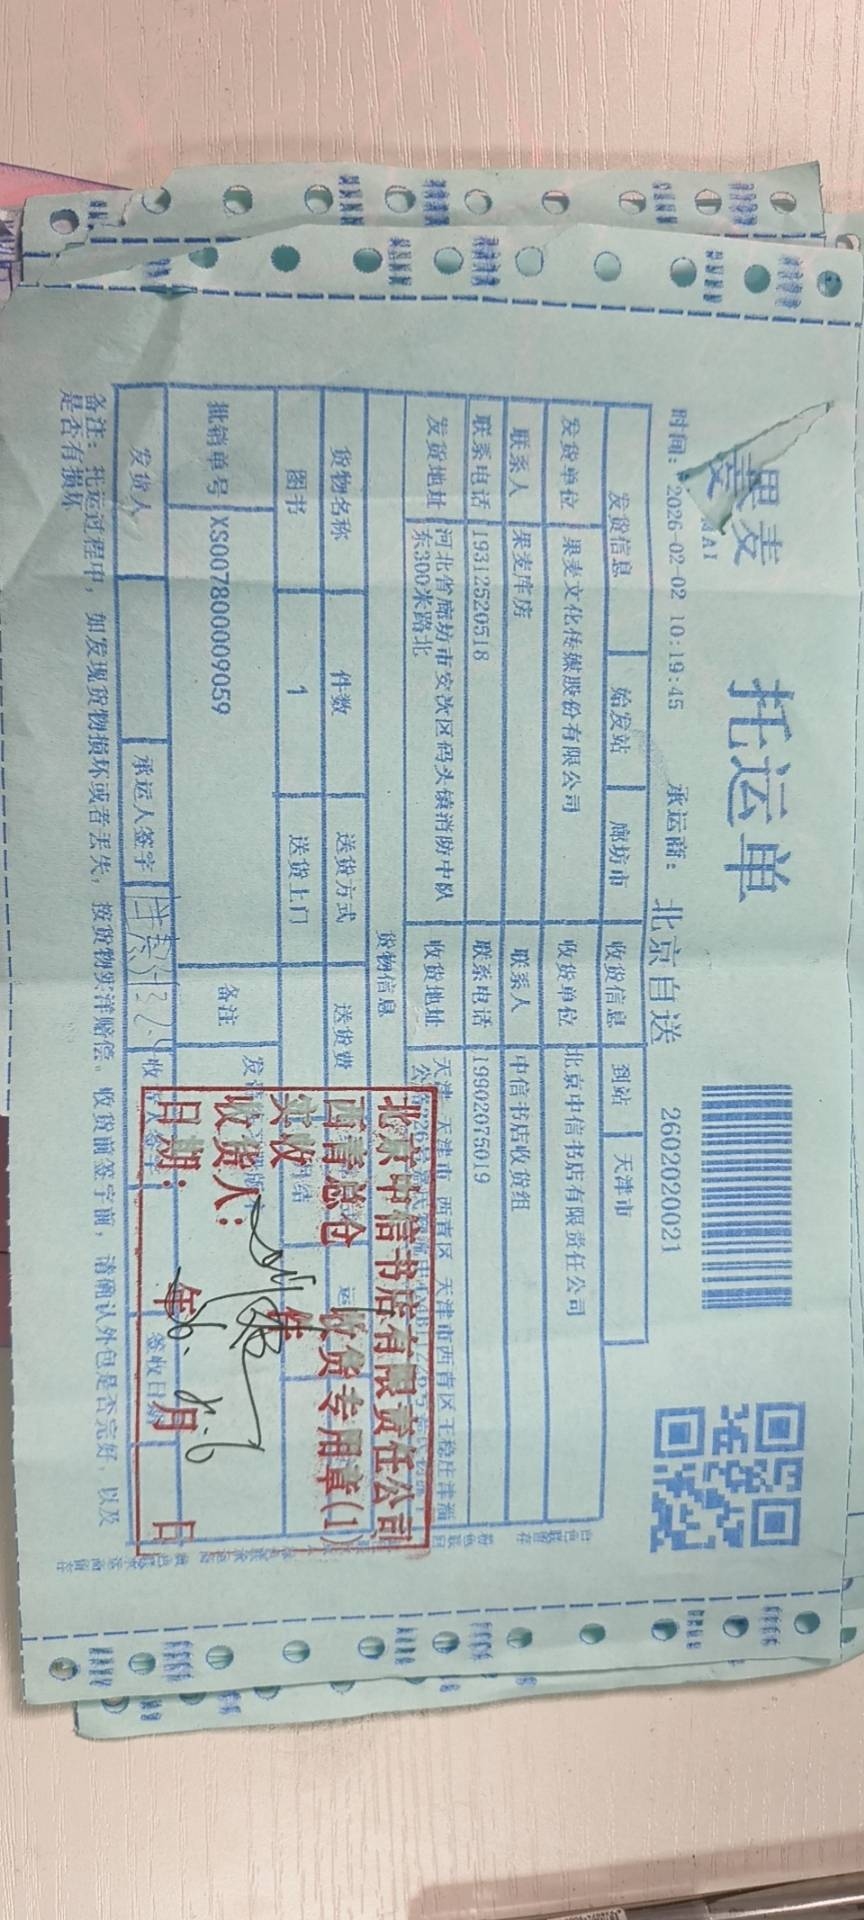 果麦
托运单
时间: 2026-02-02 10:19:45 承运商: 北京自送 2602020021
发货信息 始发站 廊坊市 收货信息 到站 天津市
发货单位 果麦文化传媒股份有限公司 收货单位 北京中信书店有限责任公司
联系人 果麦库房 联系人 中信书店收货组
联系电话 19312520518 联系电话 19902075019
发货地址 河北省廊坊市安次区码头镇消防中队东300米路北 收货地址 天津 天津市 西青区 天津市西青区王稳庄津淄
货物信息
货物名称 件数 送货方式 送货费
图书 1 送货上门
批销单号 XS007800009059 备注
发货人 承运人签字 签收日期
备注: 托运过程中, 如发现货物损坏或者丢失, 按货物实洋赔偿。收货前签字前, 请确认外包是否完好, 以及
是否有损坏
北京中信书店有限责任公司
西青总仓 收货专用章(1)
实收 件
收货人:
日期: 年 月 日